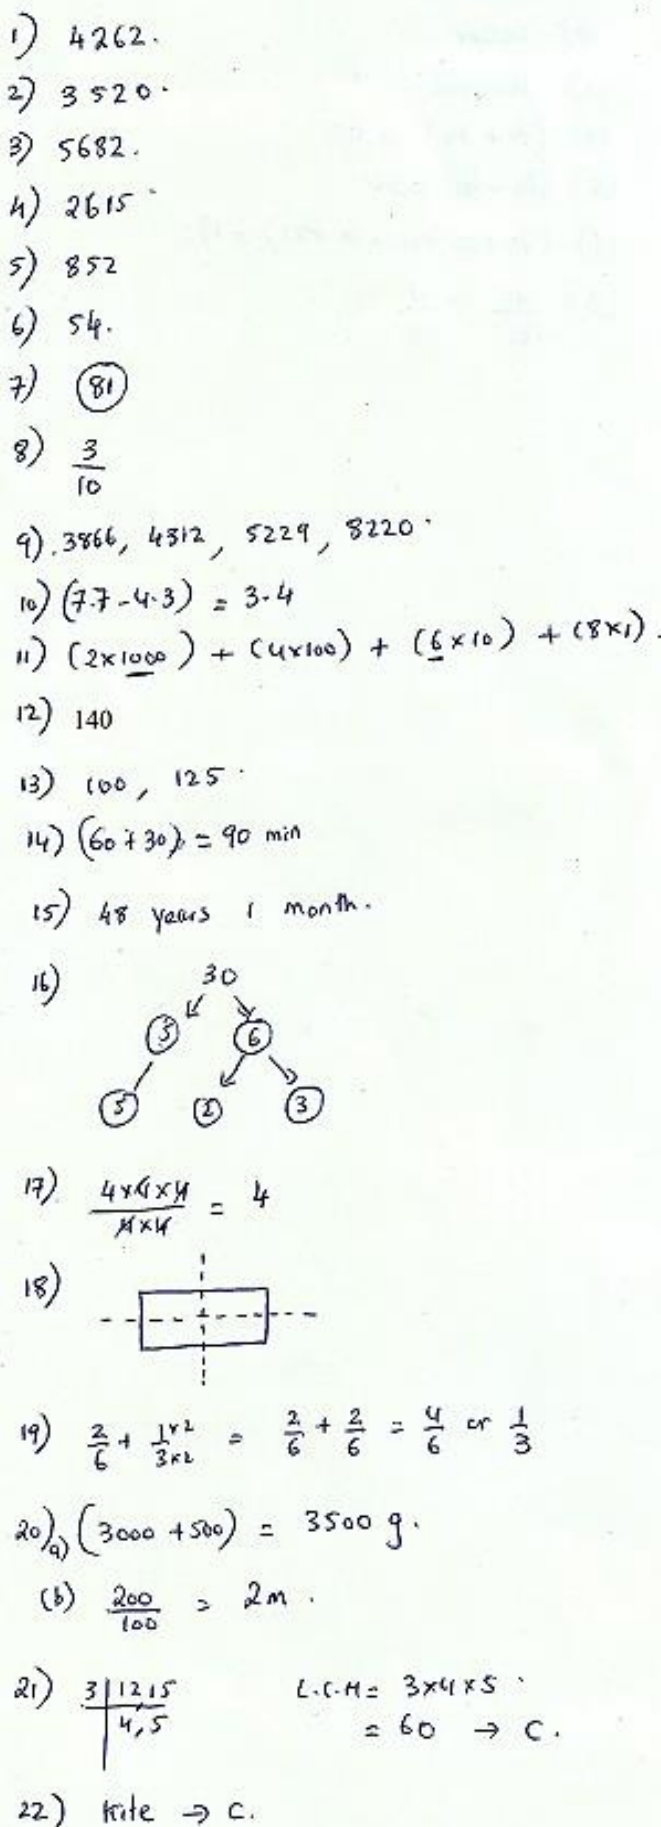 1) 4262.
2) 3520.
3) 5682.
4) 2615
5) 852
6) 54.
7) 81
8) 3/10
9) 3866, 4312, 5229, 8220.
10) (7.7 - 4.3) = 3.4
11) (2×1000) + (4×100) + (6×10) + (8×1).
12) 140
13) 100, 125.
14) (60+30) = 90 min
15) 48 years 1 month.
16) 30
5 6
5 2 3
17) 4×4×4/4×4 = 4
18)
19) 2/6 + 1×2/3×2 = 2/6 + 2/6 = 4/6 or 1/3
20) a) (3000 + 500) = 3500 g.
(b) 200/100 = 2m.
21) 3 | 12, 15 L.C.M = 3×4×5
4, 5 = 60 → C.
22) Kite → C.